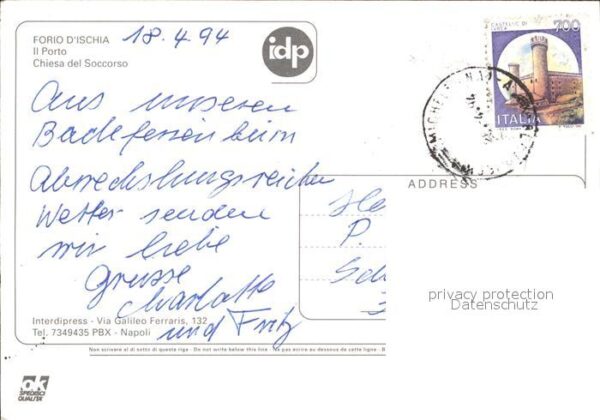 FORIO D'ISCHIA
Il Porto
Chiesa del Soccorso
18.4.94
idp
CASTELLO DI
IVREA
700
ITALIA
Aus unseren
Badeferien beim
Abwechslungsreichen
Wetter senden
wir liebe
Grüsse
Charlotte
und Fritz
ADDRESS
He
P.
Sch
privacy protection
Datenschutz
Interdipress - Via Galileo Ferraris, 132
Tel. 7349435 PBX - Napoli
Non scrivere al di sotto di questa riga - Do not write below this line - Ne pas écrire au dessous de cette ligne - B
ok
SPEDISCI
QUALITÀ